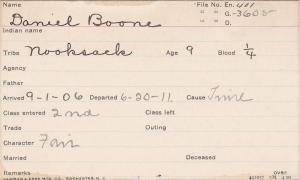 Name File No. En. 411
Daniel Boone " " G.-3605
Indian name " " O.
Tribe Nooksack Age 9 Blood 1/4
Agency
Father
Arrived 9-1-06 Departed 6-20-11. Cause Time
Class entered 2nd Class left
Trade Outing
Character Fair
Married Deceased
Remarks OVER